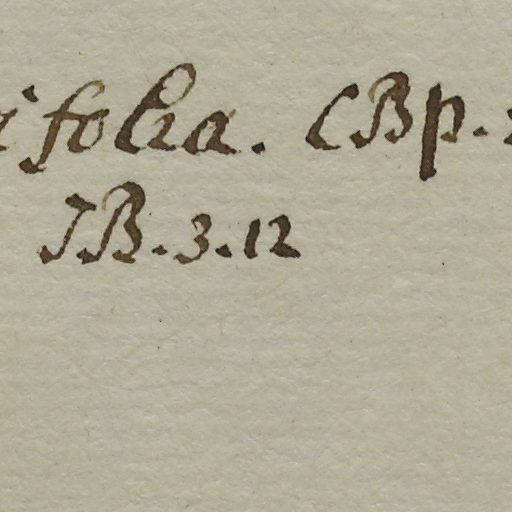 ifolia. CBp.
JB. 3. 12